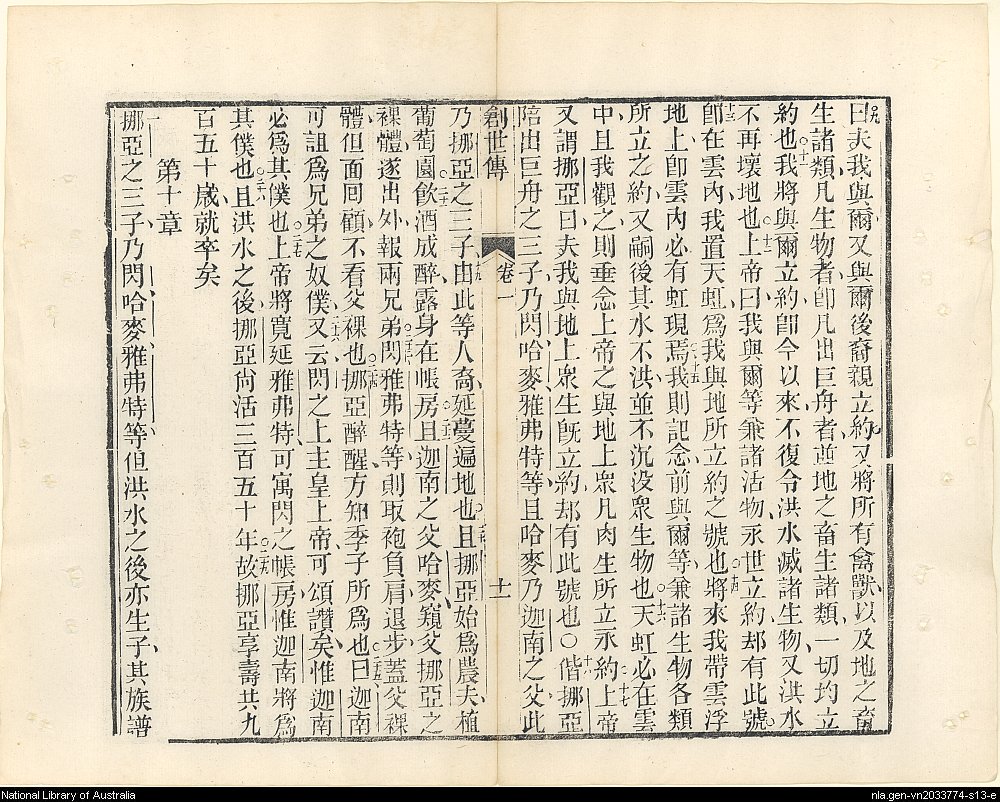 曰夫我與爾又與爾後裔親立約又將所有禽獸以及地之畜
生諸類凡生物者卽凡出巨舟者並地之畜生諸類一切均立
約也我將與爾立約卽今以來不復令洪水滅諸生物又洪水
不再壞地也上帝曰我與爾等兼諸活物永世立約却有此號
卽在雲內我置天虹爲我與地所立約之號也將來我帶雲浮
地上卽雲內必有虹現焉我則記念前與爾等兼諸生物各類
所立之約又嗣後其水不洪並不沉没衆生物也天虹必在雲
中且我觀之則垂念上帝之與地上衆凡肉生所立永約上帝
又謂挪亞曰夫我與地上衆生旣立約却有此號也○偕挪亞
陪出巨舟之三子乃閃哈麥雅弗特等且哈麥乃迦南之父此
創世傳 卷一 十一
乃挪亞之三子由此等人裔延蔓遍地也且挪亞始爲農夫植
葡萄園飲酒成醉露身在帳房且迦南之父哈麥窺父挪亞之
裸體遂出外報兩兄弟閃雅弗特等則取袍負肩退步蓋父裸
體但面回顧不看父裸也挪亞醉醒方知季子所爲也曰迦南
可詛爲兄弟之奴僕又云閃之上主皇上帝可頌讚矣惟迦南
必爲其僕也上帝將寬延雅弗特可寓閃之帳房惟迦南將爲
其僕也且洪水之後挪亞尙活三百五十年故挪亞享壽共九
百五十歲就卒矣
第十章
挪亞之三子乃閃哈麥雅弗特等但洪水之後亦生子其族譜
National Library of Australia
nla.gen-vn2033774-s13-e